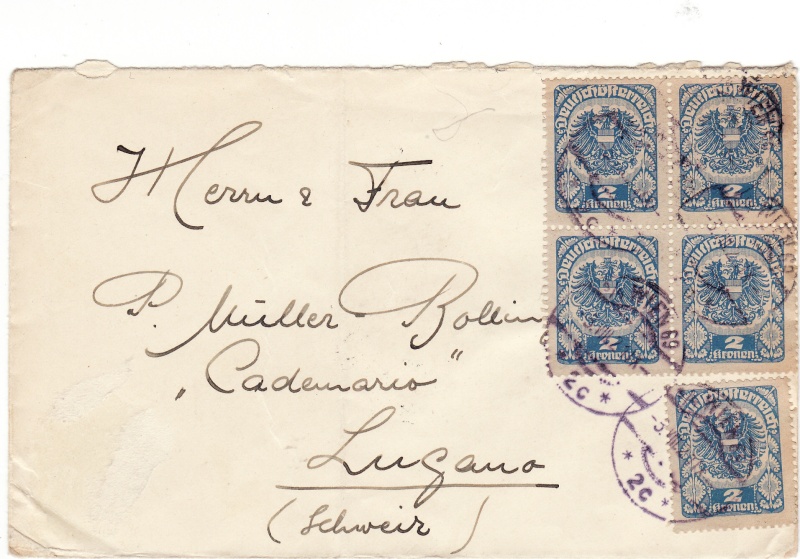 Herrn & Frau
P. Müller-Bollin
„Cademario"
Lugano
(Schweiz)
Deutschösterreich
2
Kronen
Deutschösterreich
2
Kronen
Deutschösterreich
2
Kronen
Deutschösterreich
2
Kronen
Deutschösterreich
2
Kronen
WIEN 69
WIEN 69
* 2c *
* 2c *